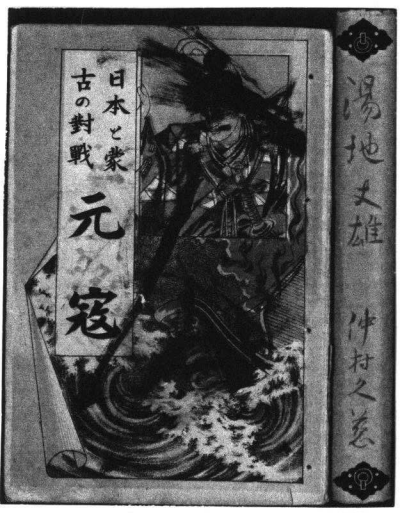 日本と蒙
古の對戰
元寇
湯地丈雄
仲村久慈